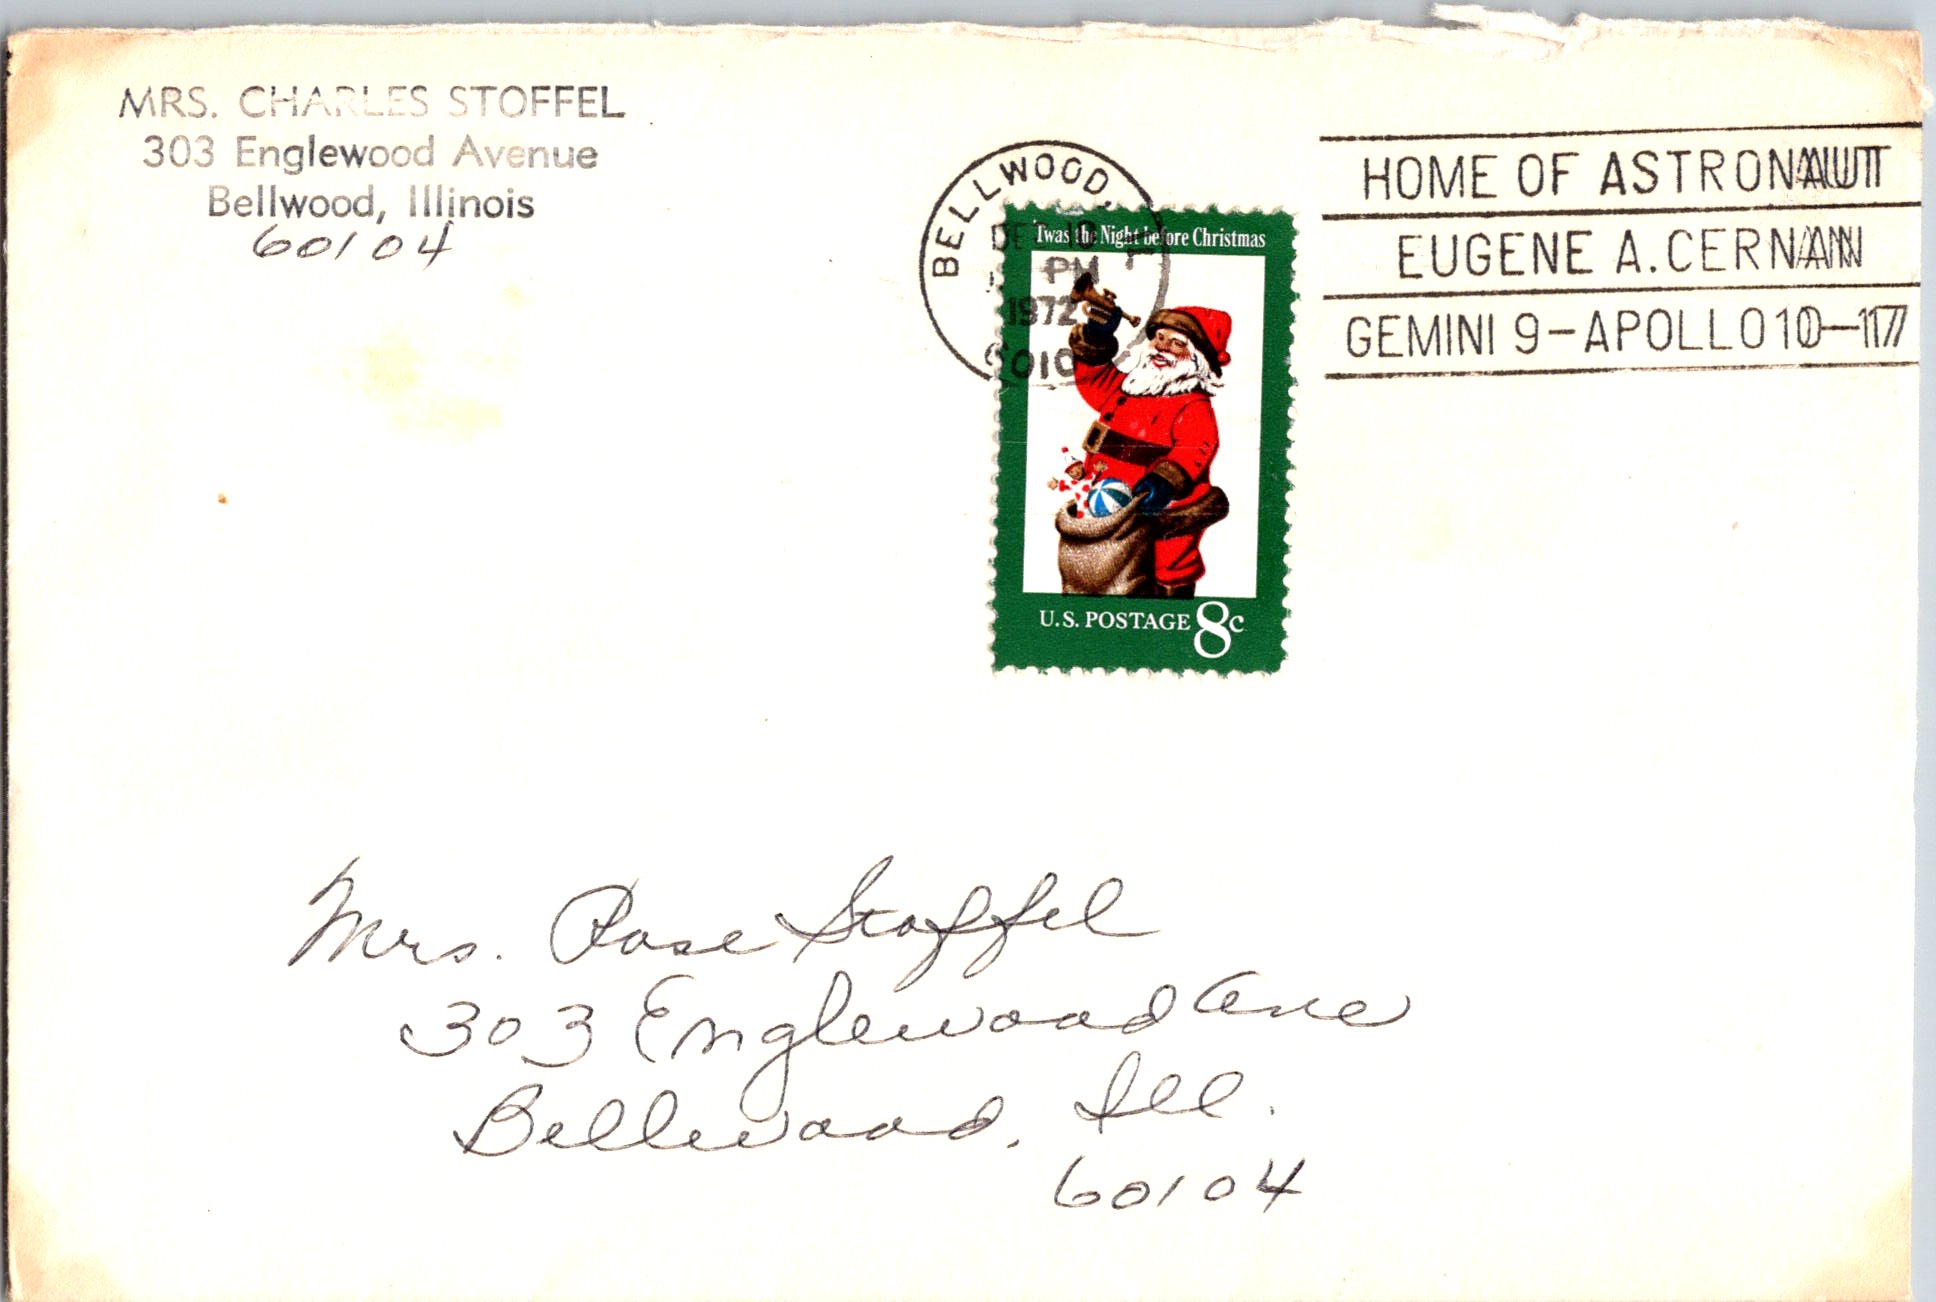 MRS. CHARLES STOFFEL
303 Englewood Avenue
Bellwood, Illinois
60104
BELLWOOD,
PM
1972
6010
'Twas the Night before Christmas
U.S. POSTAGE 8c
HOME OF ASTRONAUT
EUGENE A. CERNAN
GEMINI 9-APOLLO 10-17
Mrs. Rose Stoffel
303 Englewood Ave
Bellwood, Ill.
60104